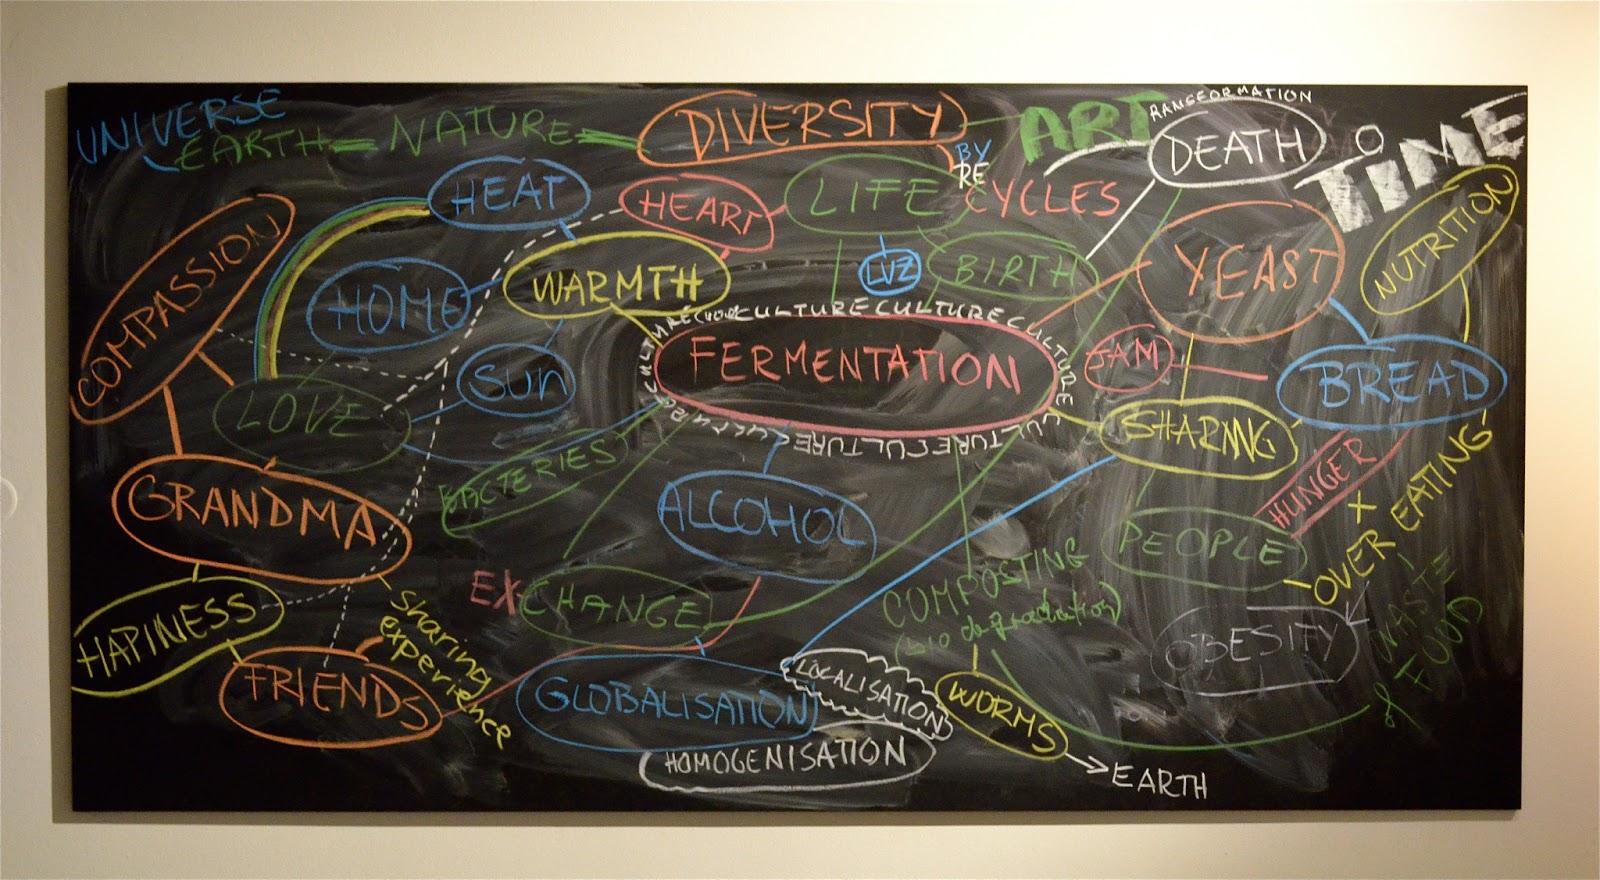 UNIVERSE
EARTH = NATURE =
DIVERSITY
ART
RANSFORMATION
DEATH
TiME
BY
RE
CYCLES
HEAT
HEART
LIFE
NUTRITION
COMPASSION
HOME
WARMTH
LVZ
BIRTH
YEAST
CULTURE CULTURE CULTURE CULTURE
FERMENTATION
CULTURE CULTURE
JAM
BREAD
LOVE
SUN
SHARING
BACTERIES
HUNGER
+
OVER EATING
GRANDMA
ALCOHOL
PEOPLE
EXCHANGE
COMPOSTING
(bio degradation)
HAPINESS
sharing
experience
OBESITY
WASTE
of FOOD
FRIENDS
GLOBALISATION
LOCALISATION
WORMS
HOMOGENISATION
EARTH